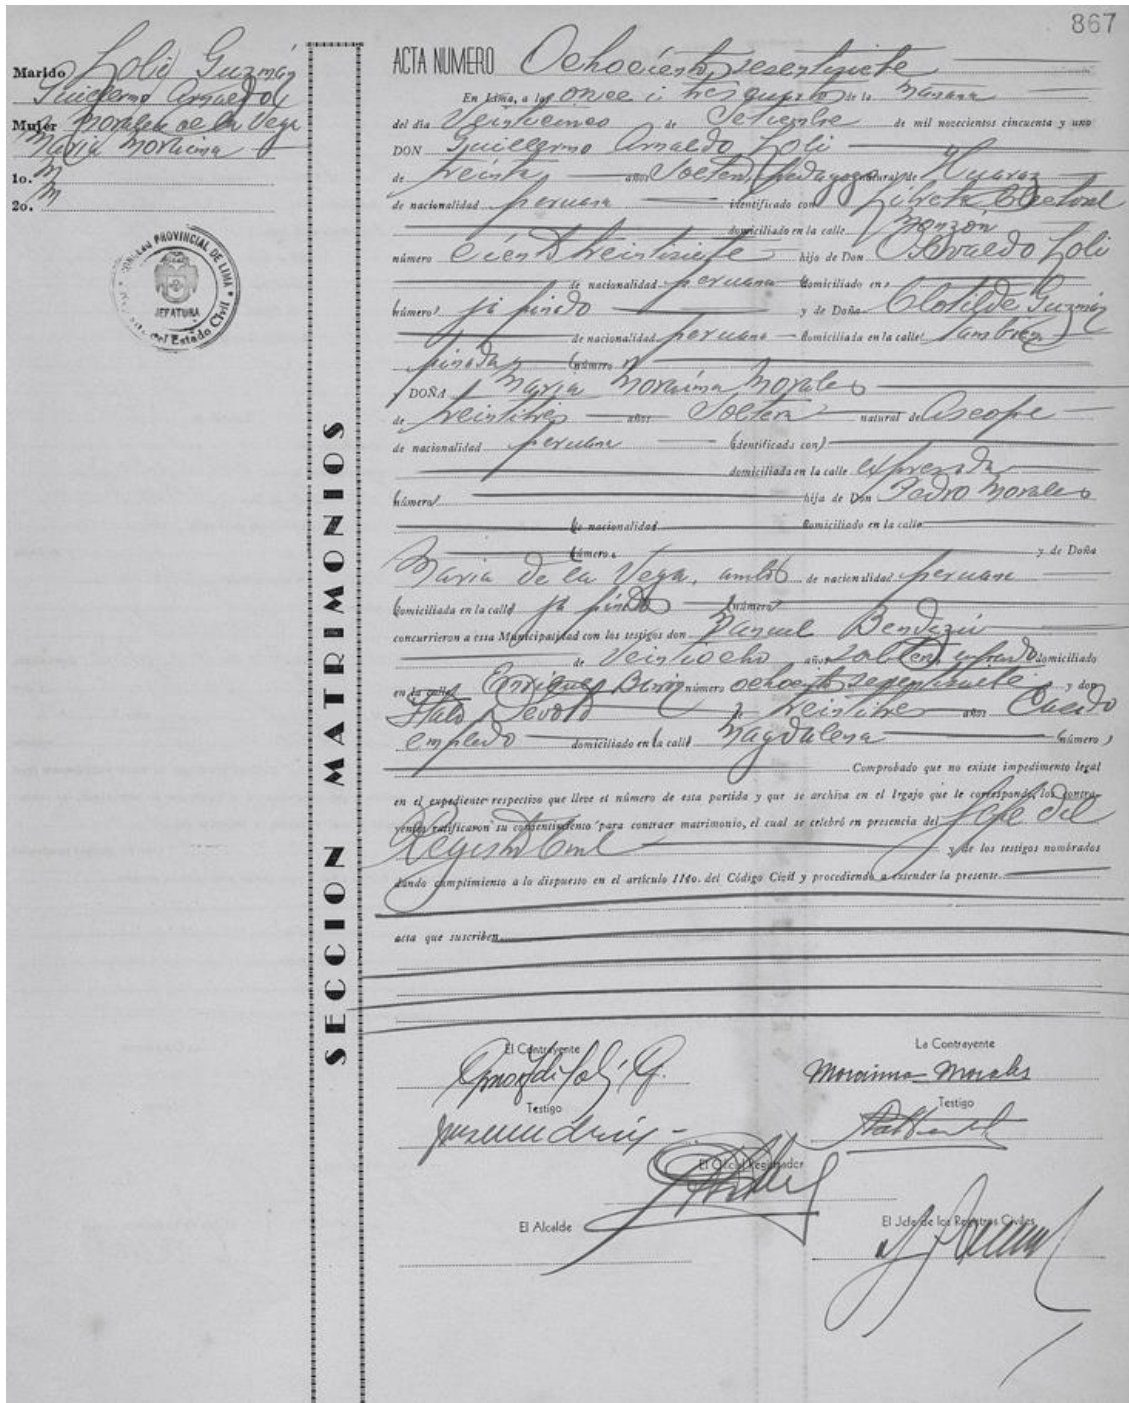 867
Marido Loli Guzmán
Guillermo Arnaldo
Mujer Morales de la Vega
Maria Moraima
1o. M
2o. M
CONCEJO PROVINCIAL DE LIMA
JEFATURA
del Estado Civil
SECCION MATRIMONIOS
ACTA NUMERO Ochocientos sesentisiete
En Lima, a las once i tres cuartos de la mañana
del día Veinticinco de Setiembre de mil novecientos cincuenta y uno
DON Guillermo Arnaldo Loli
de treinta años Soltero, pedagogo natural de Huaraz
de nacionalidad peruana identificado con Libreta Electoral
domiciliado en la calle Monzón
número ciento treintisiete hijo de Don Osvaldo Loli
de nacionalidad peruana domiciliado en
número ya pinado y de Doña Clotilde Guzmán
de nacionalidad peruana domiciliada en la calle también
pinada número
y DOÑA Maria Moraima Morales
de treintitres años Soltera natural de Ascope
de nacionalidad peruana identificada con
domiciliada en la calle expresada
número hija de Don Pedro Morales
de nacionalidad domiciliado en la calle
número y de Doña
Maria de la Vega, ambos de nacionalidad peruana
domiciliada en la calle ya número
concurrieron a esta Municipalidad con los testigos don Manuel Bendezú
de Veintiocho años soltero, empleado domiciliado
en la calle Enrique número ochocientos y don
Italo de treintitres años Casado
empleado domiciliado en la calle Magdalena número
Comprobado que no existe impedimento legal
en el expediente respectivo que lleve el número de esta partida y que se archiva en el legajo que le corresponde, los contra-
yentes ratificaron su consentimiento para contraer matrimonio, el cual se celebró en presencia del Jefe del
Registro Civil y de los testigos nombrados
dando cumplimiento a lo dispuesto en el artículo 114o. del Código Civil y procediendo a extender la presente
acta que suscriben
El Contrayente
La Contrayente
Moraima Morales
Testigo
Testigo
El Oficial Registrador
El Alcalde
El Jefe de los Registros Civiles